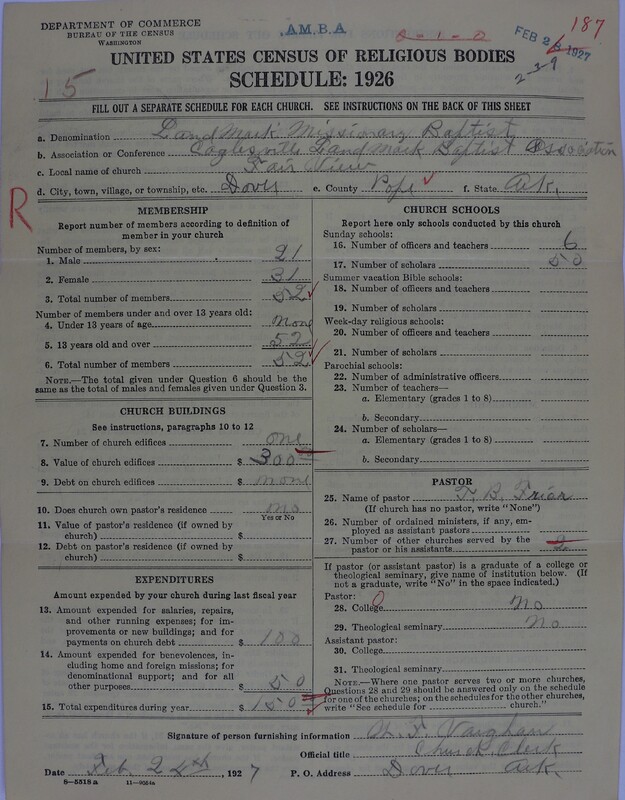 DEPARTMENT OF COMMERCE
BUREAU OF THE CENSUS
WASHINGTON
A.M.B.A
2-1-0
FEB 26 1927
187
2-3-9
15
UNITED STATES CENSUS OF RELIGIOUS BODIES
SCHEDULE: 1926
FILL OUT A SEPARATE SCHEDULE FOR EACH CHURCH. SEE INSTRUCTIONS ON THE BACK OF THIS SHEET
a. Denomination Land Mark Missionary Baptist
b. Association or Conference Eaglesville Land Mark Baptist Association
c. Local name of church Fair View
d. City, town, village, or township, etc. Dover e. County Pope f. State Ark.
R
MEMBERSHIP
Report number of members according to definition of member in your church
Number of members, by sex:
1. Male 21
2. Female 31
3. Total number of members 52
Number of members under and over 13 years old:
4. Under 13 years of age none
5. 13 years old and over 52
6. Total number of members 52
NOTE.—The total given under Question 6 should be the same as the total of males and females given under Question 3.
CHURCH BUILDINGS
See instructions, paragraphs 10 to 12
7. Number of church edifices one
8. Value of church edifices $ 300
9. Debt on church edifices $ none
10. Does church own pastor's residence no
Yes or No
11. Value of pastor's residence (if owned by church) $
12. Debt on pastor's residence (if owned by church) $
EXPENDITURES
Amount expended by your church during last fiscal year
13. Amount expended for salaries, repairs, and other running expenses; for improvements or new buildings; and for payments on church debt $ 100
14. Amount expended for benevolences, including home and foreign missions; for denominational support; and for all other purposes $ 50
15. Total expenditures during year $ 150
CHURCH SCHOOLS
Report here only schools conducted by this church
Sunday schools:
16. Number of officers and teachers 6
17. Number of scholars 50
Summer vacation Bible schools:
18. Number of officers and teachers
19. Number of scholars
Week-day religious schools:
20. Number of officers and teachers
21. Number of scholars
Parochial schools:
22. Number of administrative officers
23. Number of teachers—
a. Elementary (grades 1 to 8)
b. Secondary
24. Number of scholars—
a. Elementary (grades 1 to 8)
b. Secondary
PASTOR
25. Name of pastor T. B. Friar
(If church has no pastor, write "None")
26. Number of ordained ministers, if any, employed as assistant pastors
27. Number of other churches served by the pastor or his assistants 2
If pastor (or assistant pastor) is a graduate of a college or theological seminary, give name of institution below. (If not a graduate, write "No" in the space indicated.)
Pastor: 0
28. College No
29. Theological seminary No
Assistant pastor:
30. College
31. Theological seminary
NOTE.—Where one pastor serves two or more churches, Questions 28 and 29 should be answered only on the schedule for one of the churches; on the schedules for the other churches, write "See schedule for church."
Signature of person furnishing information Vaughan
Official title Church Clerk
Date Feb. 24th, 1927 P. O. Address Dover Ark.
8—5518 a 11—9554a